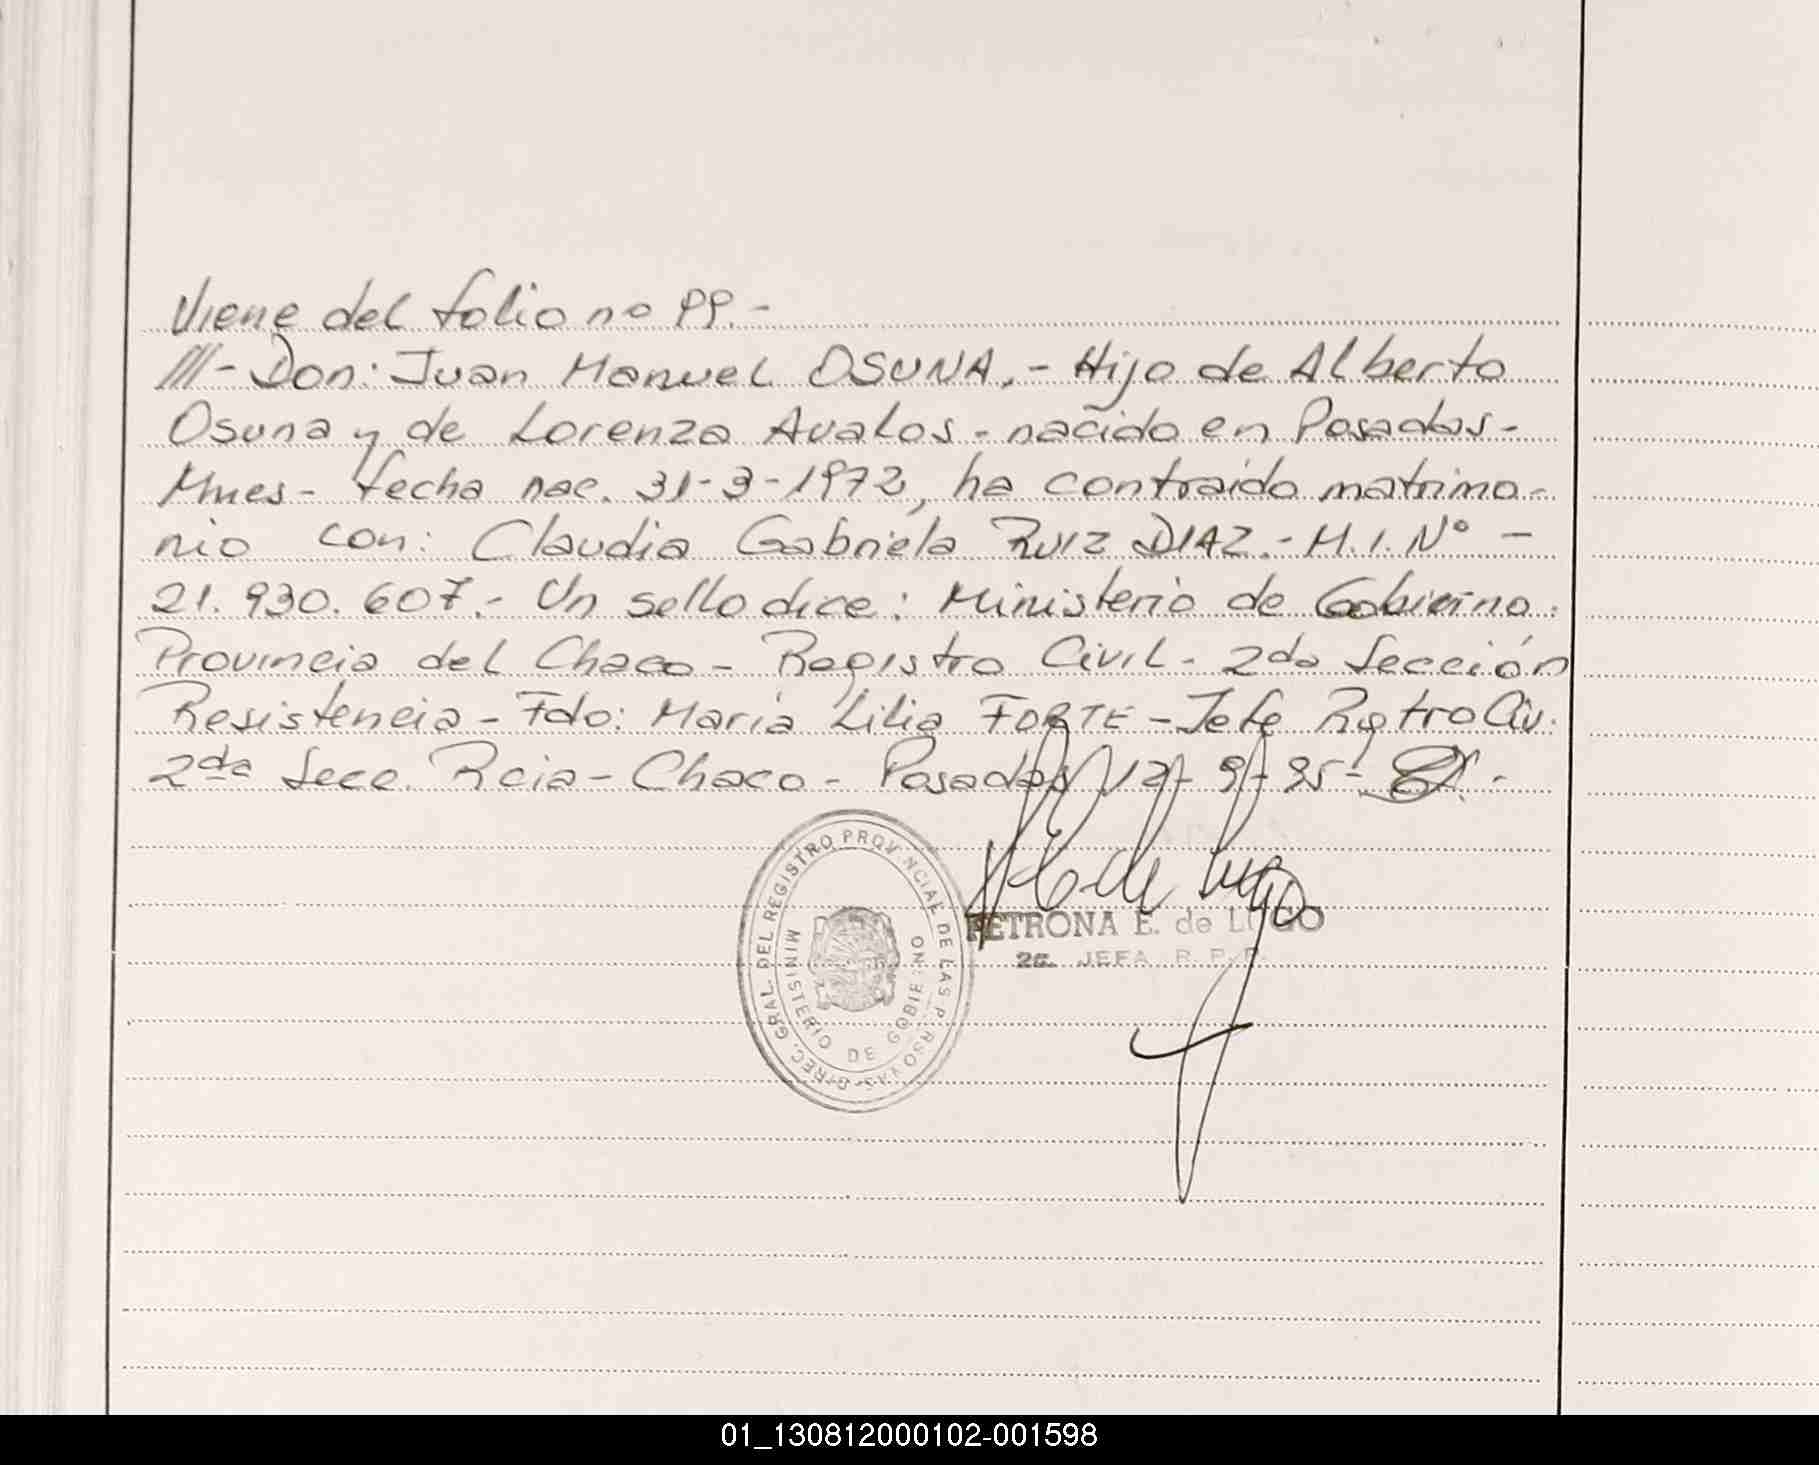 Viene del folio no 99.-
///- Don: Juan Manuel OSUNA.- Hijo de Alberto
Osuna y de Lorenza Avalos - nacido en Posadas -
Mnes - fecha nac. 31-3-1972, ha contraído matrimo-
nio con: Claudia Gabriela RUIZ DIAZ.- M.I. Nº -
21.930.607.- Un sello dice: Ministerio de Gobierno.
Provincia del Chaco - Registro Civil - 2da Sección
Resistencia - Fdo: María Lilia FORTE - Jefe Rgtro Civ.
2da Secc. Rcia - Chaco - Posadas 12-9-95-
DIREC. GRAL. DEL REGISTRO PROVINCIAL DE LAS PERSONAS
MINISTERIO DE GOBIERNO
PETRONA E. de LUGO
2a. JEFA R. P. P.
01_130812000102-001598